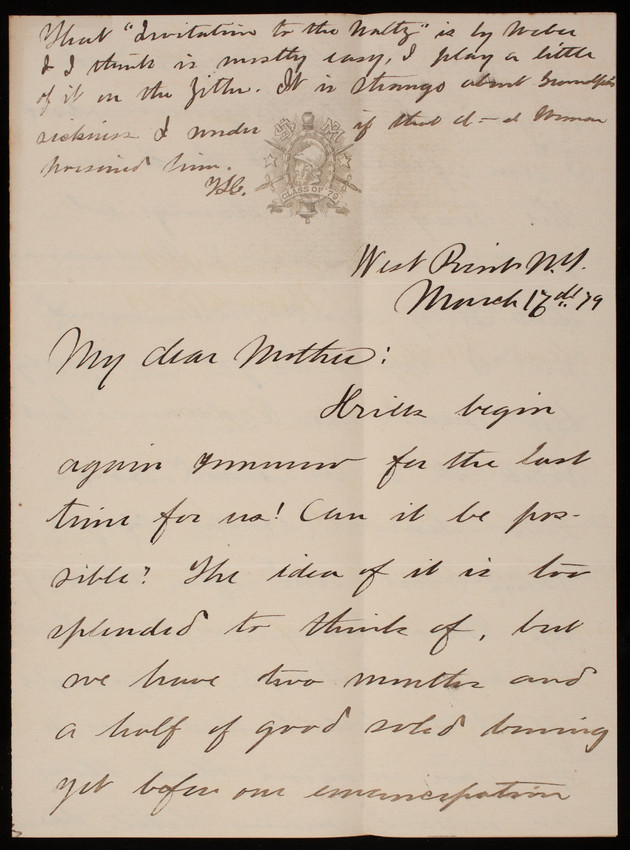 That "Invitation to the Waltz" is by Weber
& I think is mostly easy, I play a little
of it on the Zither. It is strange about Grandpa's
sickness I wonder if that d—d Woman
poisoned him.
CLASS OF '79
West Point N.Y.
March 16th 79
My dear Mother:
Drills begin
again tomorrow for the last
time for us! Can it be pos-
sible? The idea of it is too
splended to think of, but
we have two months and
a half of good solid boning
yet before our emancipation